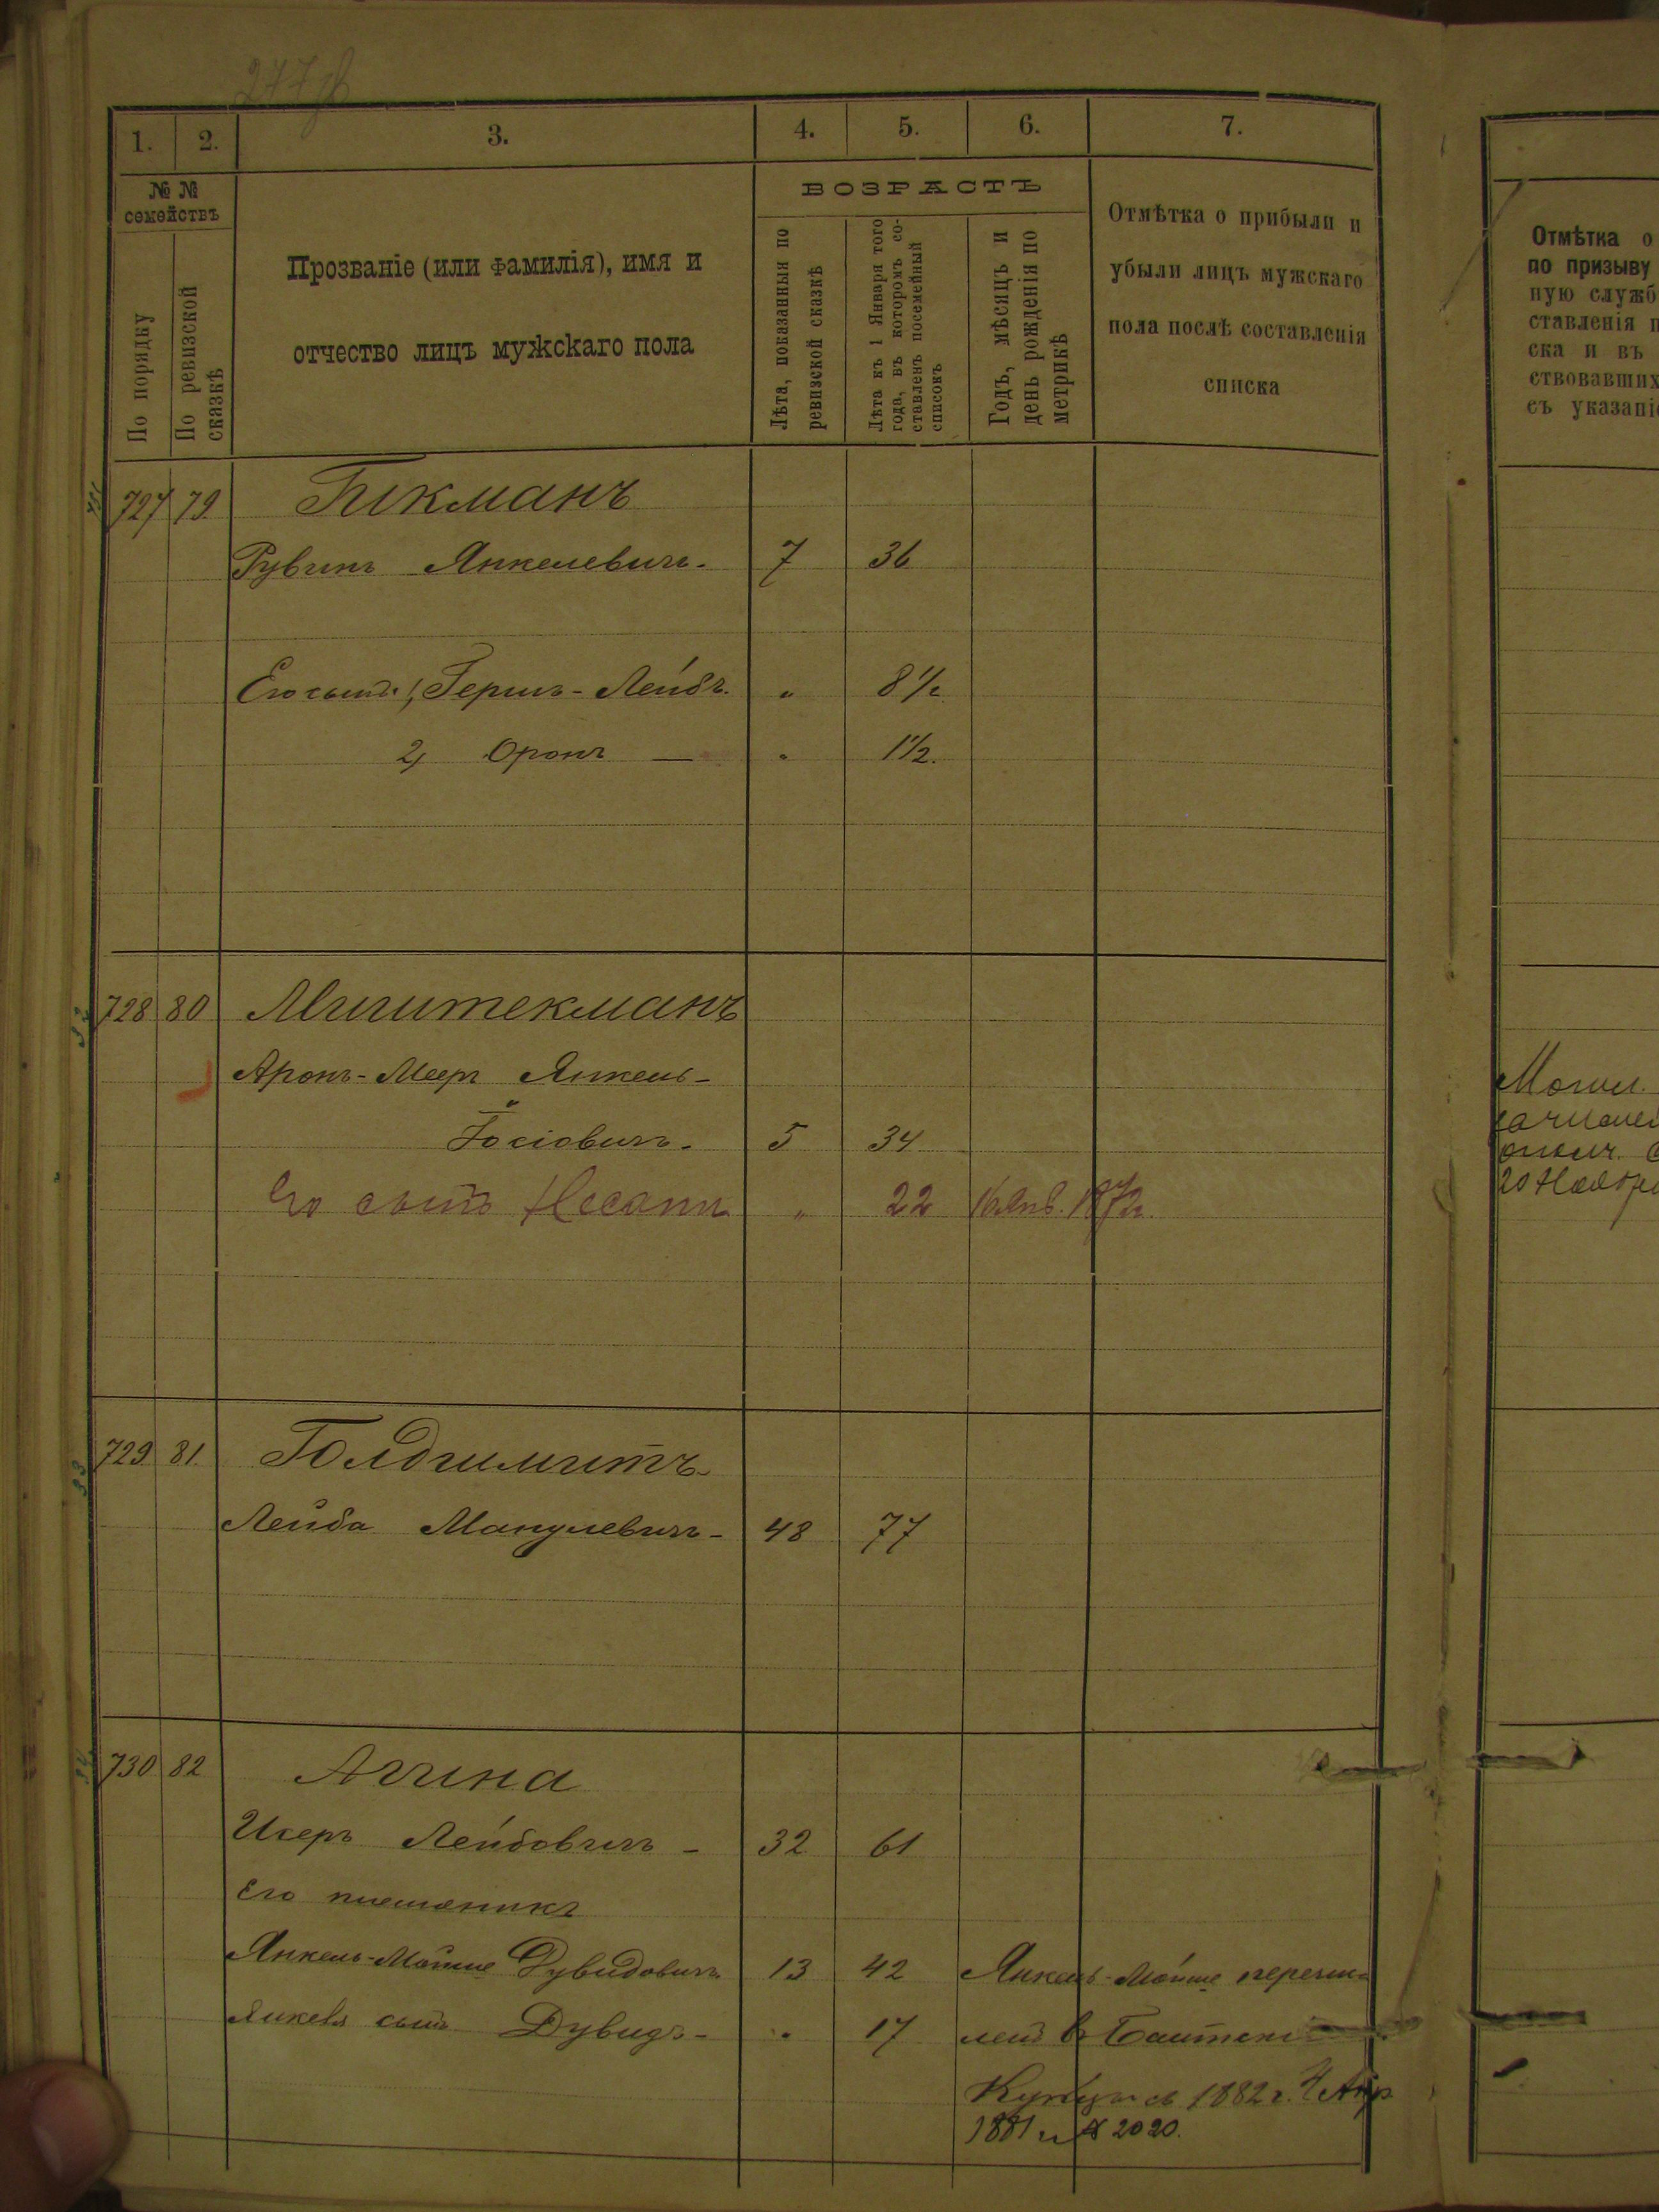 277
1. 2. 3. 4. 5. 6. 7.
№ № семействъ
По порядку
По ревизской сказкѣ
Прозваніе (или фамилія), имя и
отчество лицъ мужскаго пола
ВОЗРАСТЪ
Лѣта, показанныя по ревизской сказкѣ
Лѣта къ 1 Января того года, въ которомъ составленъ посемейный списокъ
Годъ, мѣсяцъ и день рожденія по метрикѣ
Отмѣтка о прибыли и
убыли лицъ мужскаго
пола послѣ составленія
списка
Отмѣтка о
по призыву
ную служб
ставленія п
ска и въ
ствовавших
съ указані
727 79 Бикманъ
Рувинъ Янкелевичъ. 7 36
Его сын. 1, Гершъ-Лейбъ. " 8 1/2
2, Оронъ — " 1 1/2.
728 80
Аронъ-Меер Янкель-
Іосіовичъ. 5 34
Его сынъ Нссанъ " 22 16 Янв. 1872г.
Могил.
20 Ноября
729 81. Голдшмитъ
Лейба Манулевичъ- 48 77
730 82 Аччина
Исеръ Лейбовичъ - 32 61
Его племяникъ
Янкель-Мойше Дувидовичъ 13 42 Янкель-Мойше перечис-
Янкеля сынъ Дувидъ- " 17 лен в
Купцы съ 1882 г.
1881 г № 2020.